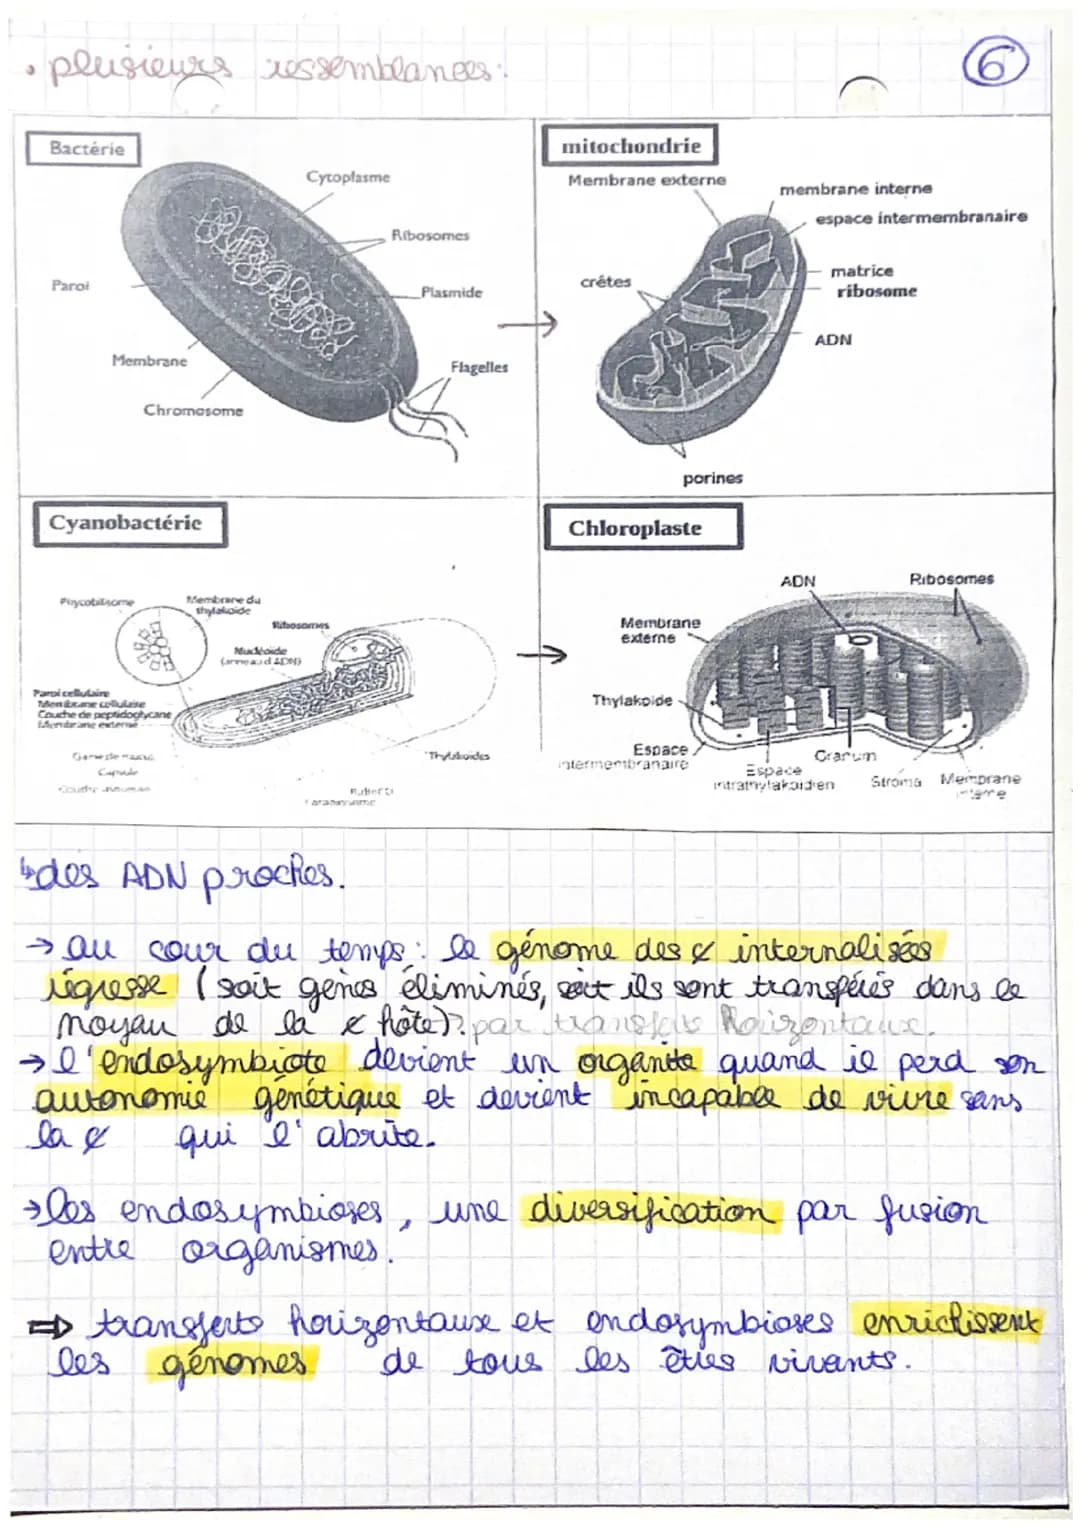 • plusieurs ressemblances:
6
Bactérie
Cytoplasme
Ribosomes
Paroi
Plasmide
Membrane
Flagelles
Chromosome
mitochondrie
Membrane externe
membrane interne
espace intermembranaire
crêtes
matrice
ribosome
ADN
porines
Cyanobactérie
Phycobilisome
Membrane du
thylakoïde
Ribosomes
Nucléoïde
(anneau d'ADN)
Paroi cellulaire
Membrane cellulaire
Couche de peptidoglycane
Membrane externe
Capsule
Thylakoïdes
Chloroplaste
ADN
Ribosomes
Membrane
externe
Thylakoide
Espace
intermembranaire
Espace
intrathylakoidien
Granum
Stroma
Membrane
interne
↳des ADN proches.
→ au cour du temps: le génome des ¢ internalisées
régresse (soit gènes éliminés, soit ils sont transférés dans le
noyau de la ¢ hôte) par transferts horizontaux.
→ l'endosymbiote devient un organite quand il perd son
autonomie génétique et devient incapable de vivre sans
la ¢ qui l'abrite.
→ les endosymbioses, une diversification par fusion
entre organismes.
⇒ transferts horizontaux et endosymbioses enrichissent
les génomes de tous les êtres vivants.